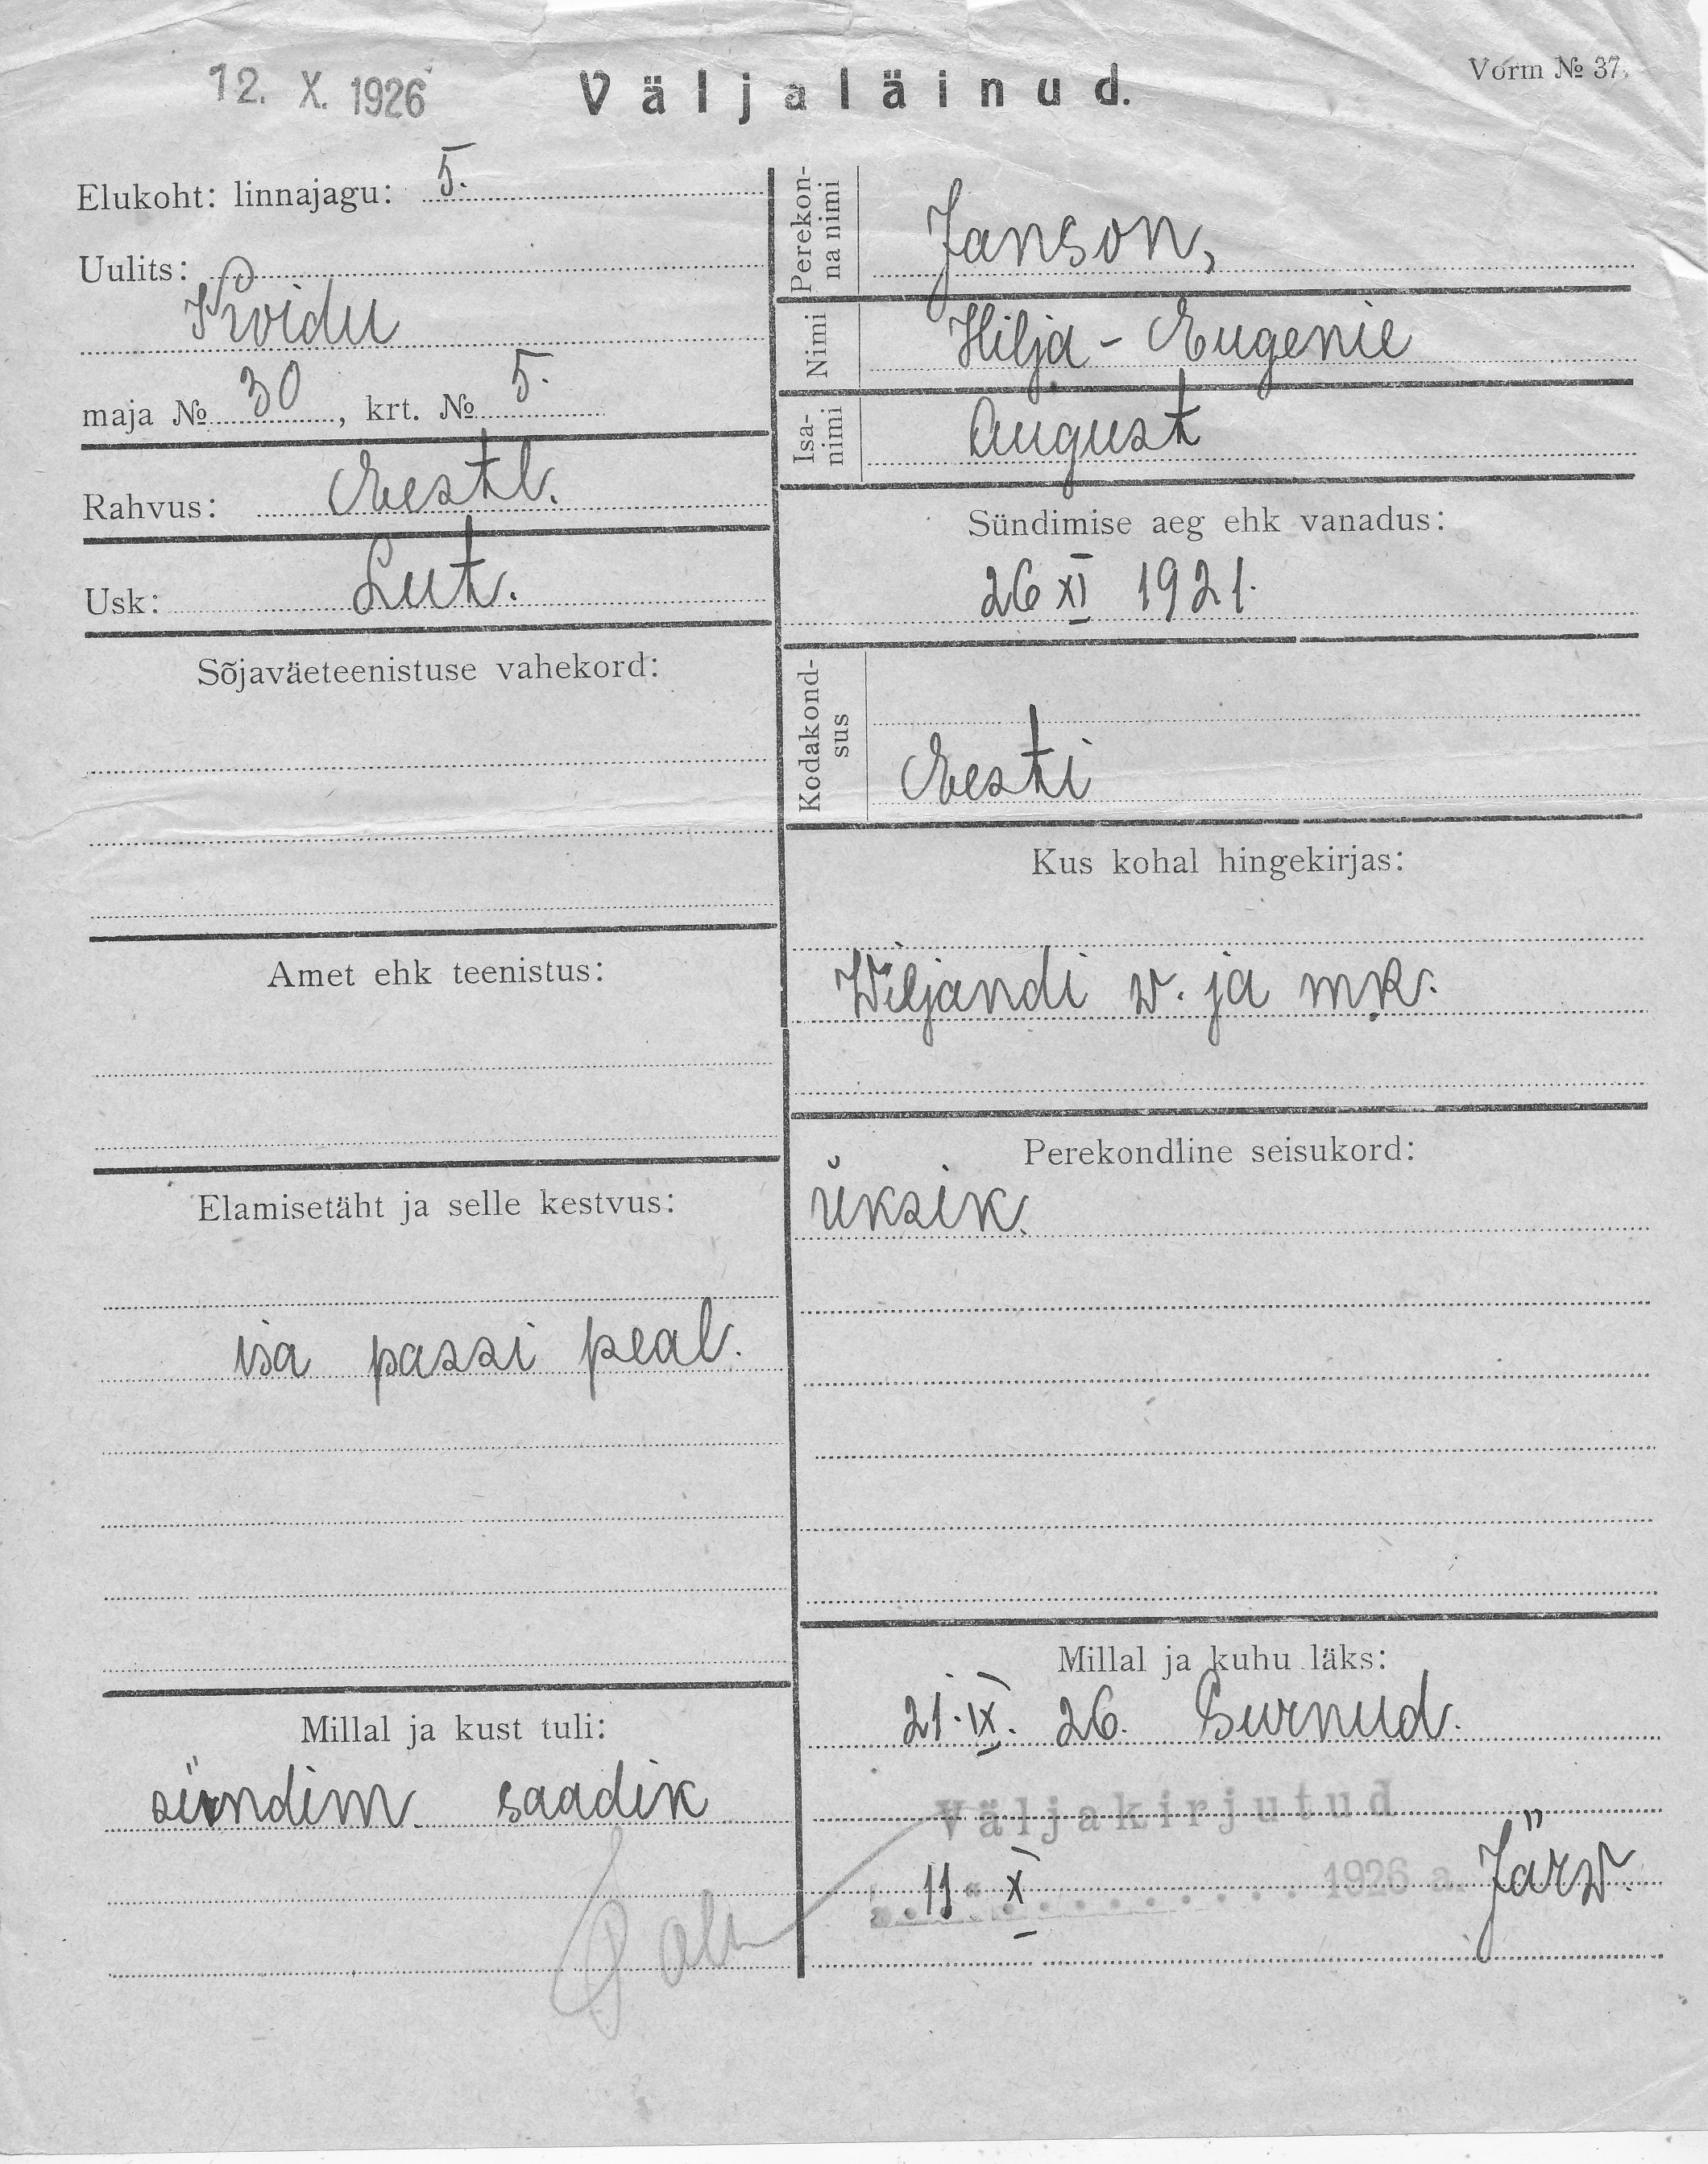 12. X. 1926
Väljaläinud.
Vorm № 37.
Elukoht: linnajagu: 5.
Uulits:
Koidu
maja № 30, krt. № 5.
Rahvus: Eestl.
Usk: Lut.
Sõjaväeteenistuse vahekord:
Amet ehk teenistus:
Elamisetäht ja selle kestvus:
isa passi peal.
Millal ja kust tuli:
sündim. saadik
Perekon-
na nimi
Janson,
Nimi
Hilja - Eugenie
Isa-
nimi
August
Sündimise aeg ehk vanadus:
26 XI 1921.
Kodakond-
sus
Eesti
Kus kohal hingekirjas:
Wiljandi w. ja mk.
Perekondline seisukord:
üksik.
Millal ja kuhu läks:
21. IX. 26. Surnud.
Väljakirjutud
11. X 1926 a. Järw.